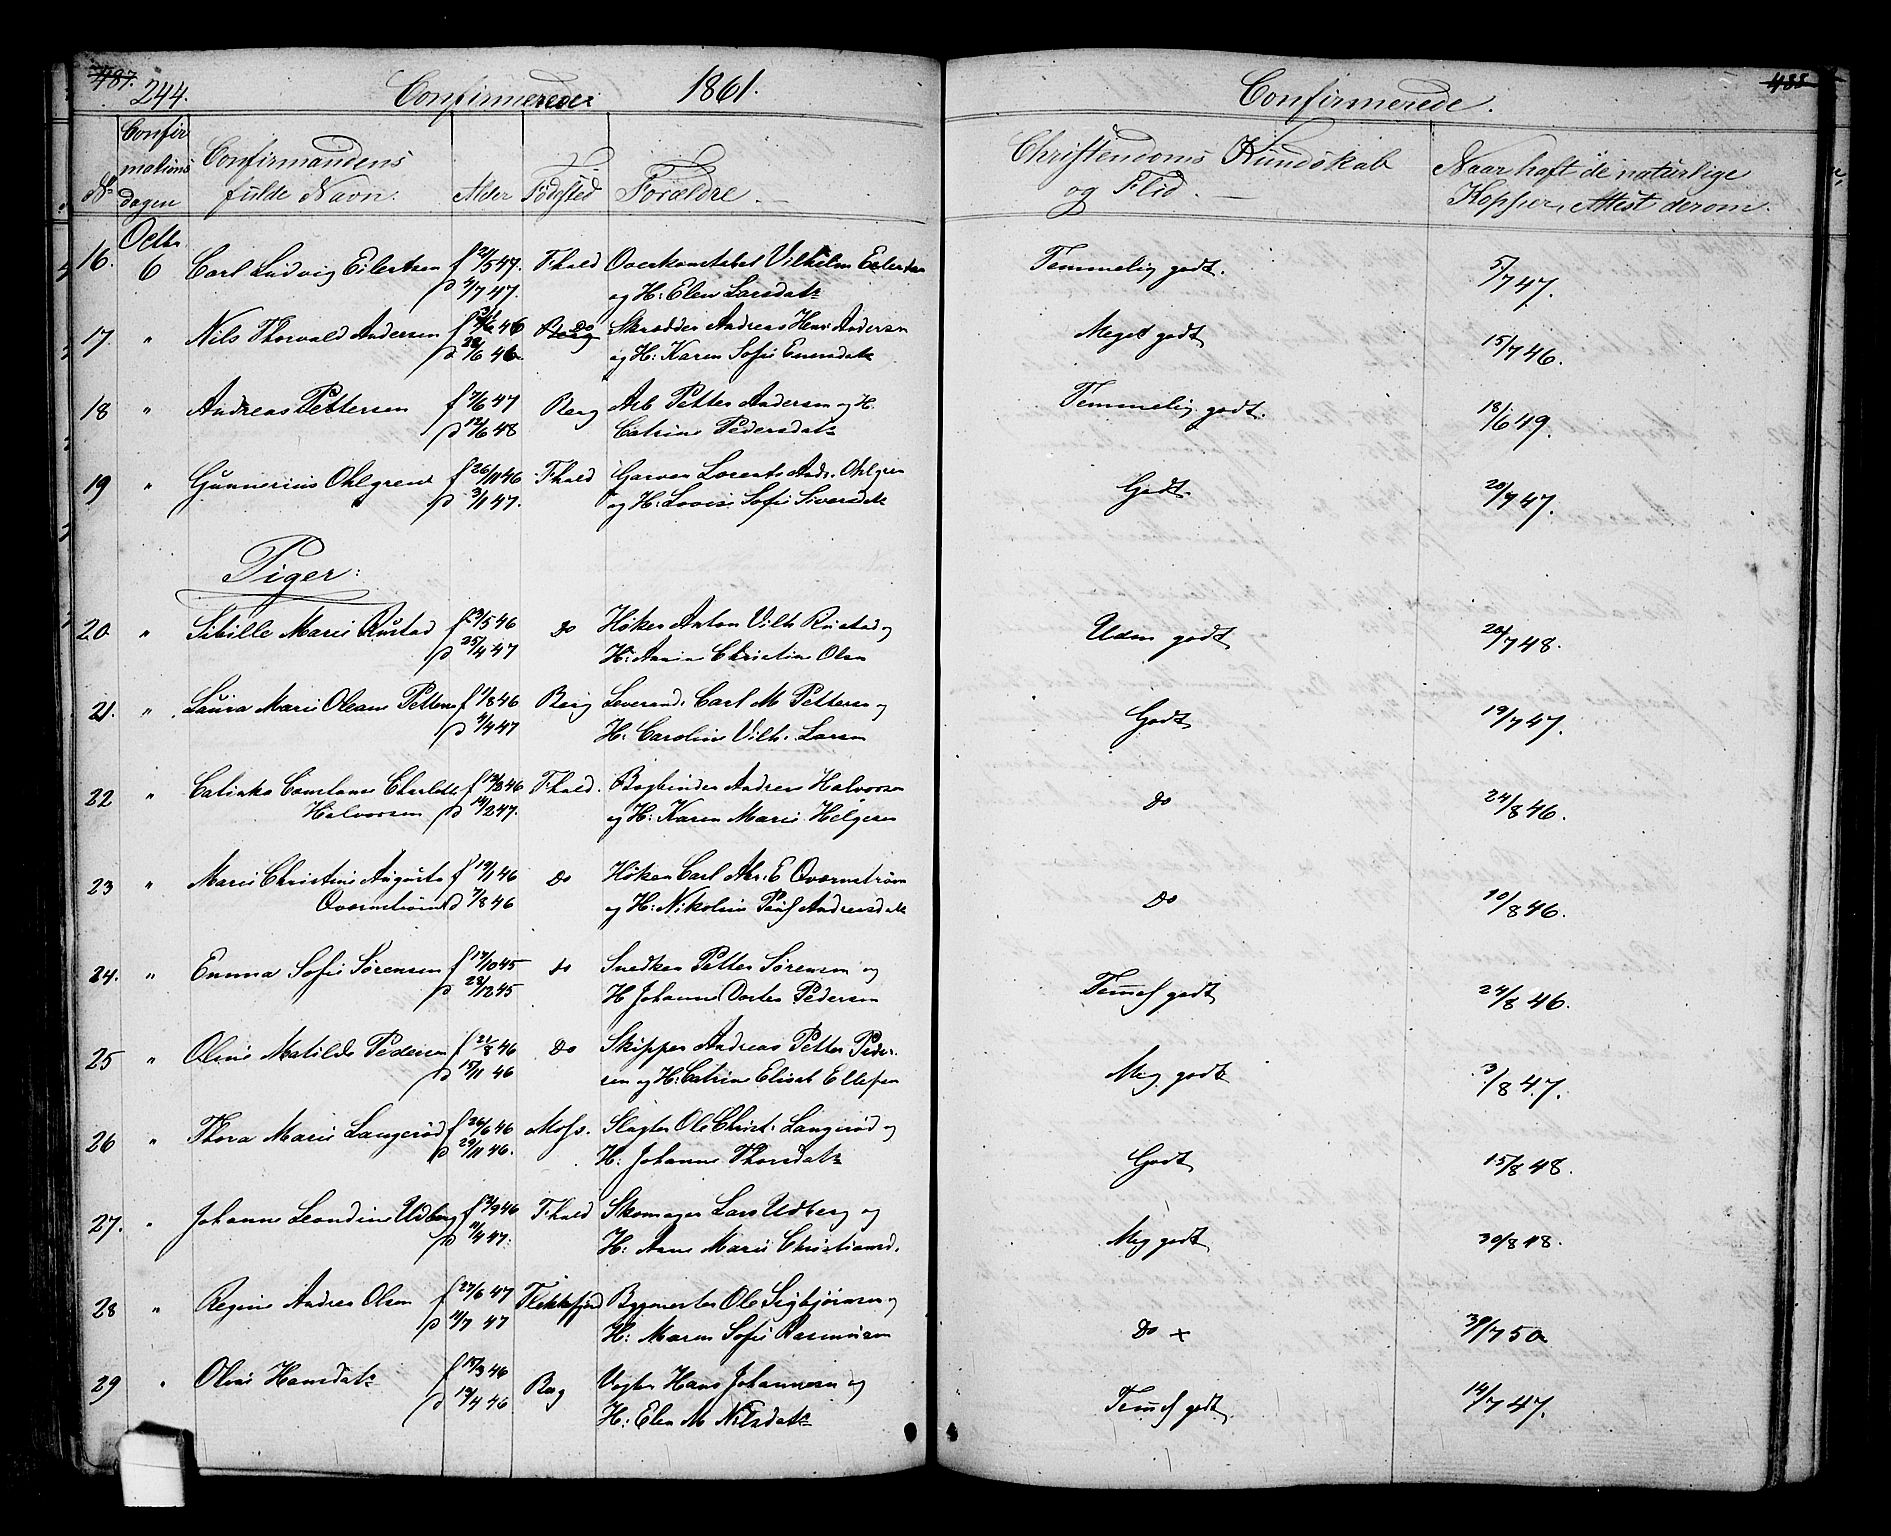 487. 244. Confirmerede 1861.
No Confirmations dagen Confirmandens fulde Navn. Alder Fødested Forældre.
16. Octbr. 6 Carl Ludvig Eilertsen f 21/5 47. Fhald Overkonstabel Vilhelm Eilertsen
d 4/7 47. og H: Elen Larsdatr
17. " Nils Thorvald Andersen 46 Do Skrædder Andreas Henr Andersen
d 28/6 46 og H: Karen Sofie Evensdatr
18 " Andreas Pettersen f 7/6 47 Berg Arb Petter Andersen og H.
d 12/6 48 Catrine Pedersdatr
19 " Gunnerius Ohlgren f 26/11 46 Fhald Garver Lorents Andr. Ohlgren
d 3/1 47. og H: Lovise Sofie Siversdatr
Piger:
20. " Sibille Marie Rustad f 23/5 46 Do Høker Anton Vilh Rustad og
d 25/4 47 H: Anna Christine Olsen
21. " Laura Marie Oleane Pettersen f 1/8 46 Berg Leverand. Carl M Petterse og
d 4/4 47 H: Caroline Vilh. Larsen
22 " Catinka Constance Charlotte f 12/8 46 Fhald. Bogbinder Andrea Halvorsen
Halvorsen d 14/2 47. og H: Karen Marie Helgesen
23 " Marie Christine Augusta f 19/1 46 Do Høker Carl Abr. E Qvarnstrøm
Qvarnstrøm d 7/8 46 og H: Nikoline Andreasdatr
24. " Emma Sofie Sørensen f 17/10 45 do Snedker Petter Sørensen og
d 28/12 45 H Johanne Dortea Pedersen
25 " Oline Matilde Pedersen f 21/8 46 Do Skipper Andreas Petter Peder-
d 15/11 46 sen og H: Catrine Elisab Ellefsen
26 " Thora Marie Langerød f 26/6 46 Moss. Slagter Ole Christ. Langerød og
d 29/11 46. H. Johanne Thorsdatr
27. " Johanne Leondine Udberg f 2/9 46 Fhald Skomager Lars Udberg og
d 11/4 47. H: Anne Marie Christiansd.
28 " Regine Andrea Olsen f 27/6 47 Flekkefjord Bygmester Ole Sigbjørnsen og
d 11/7 47 H: Maren Sofie Rasmussen
29 " Oline Hansdatr f 15/3 46 Berg Vogter Hans Johannesen og
d 12/4 46 H: Elen M Nilsdatr
Confirmerede. 488
Christendoms Kundskab og Flid. Naar haft de naturlige Kopper, Attest derom.
Temmelig godt. 5/7 47.
Meget godt 15/7 46.
Temmelig godt. 18/6 49.
Godt. 20/7 47.
Udm godt 20/7 48.
Godt 19/7 47.
Do 24/8 46.
Do 10/8 46.
Temel godt 24/8 46.
Meg godt 3/8 47.
Godt 15/8 48.
Meg godt 30/8 48.
Do × 30/7 50
Temel godt. 14/7 47.